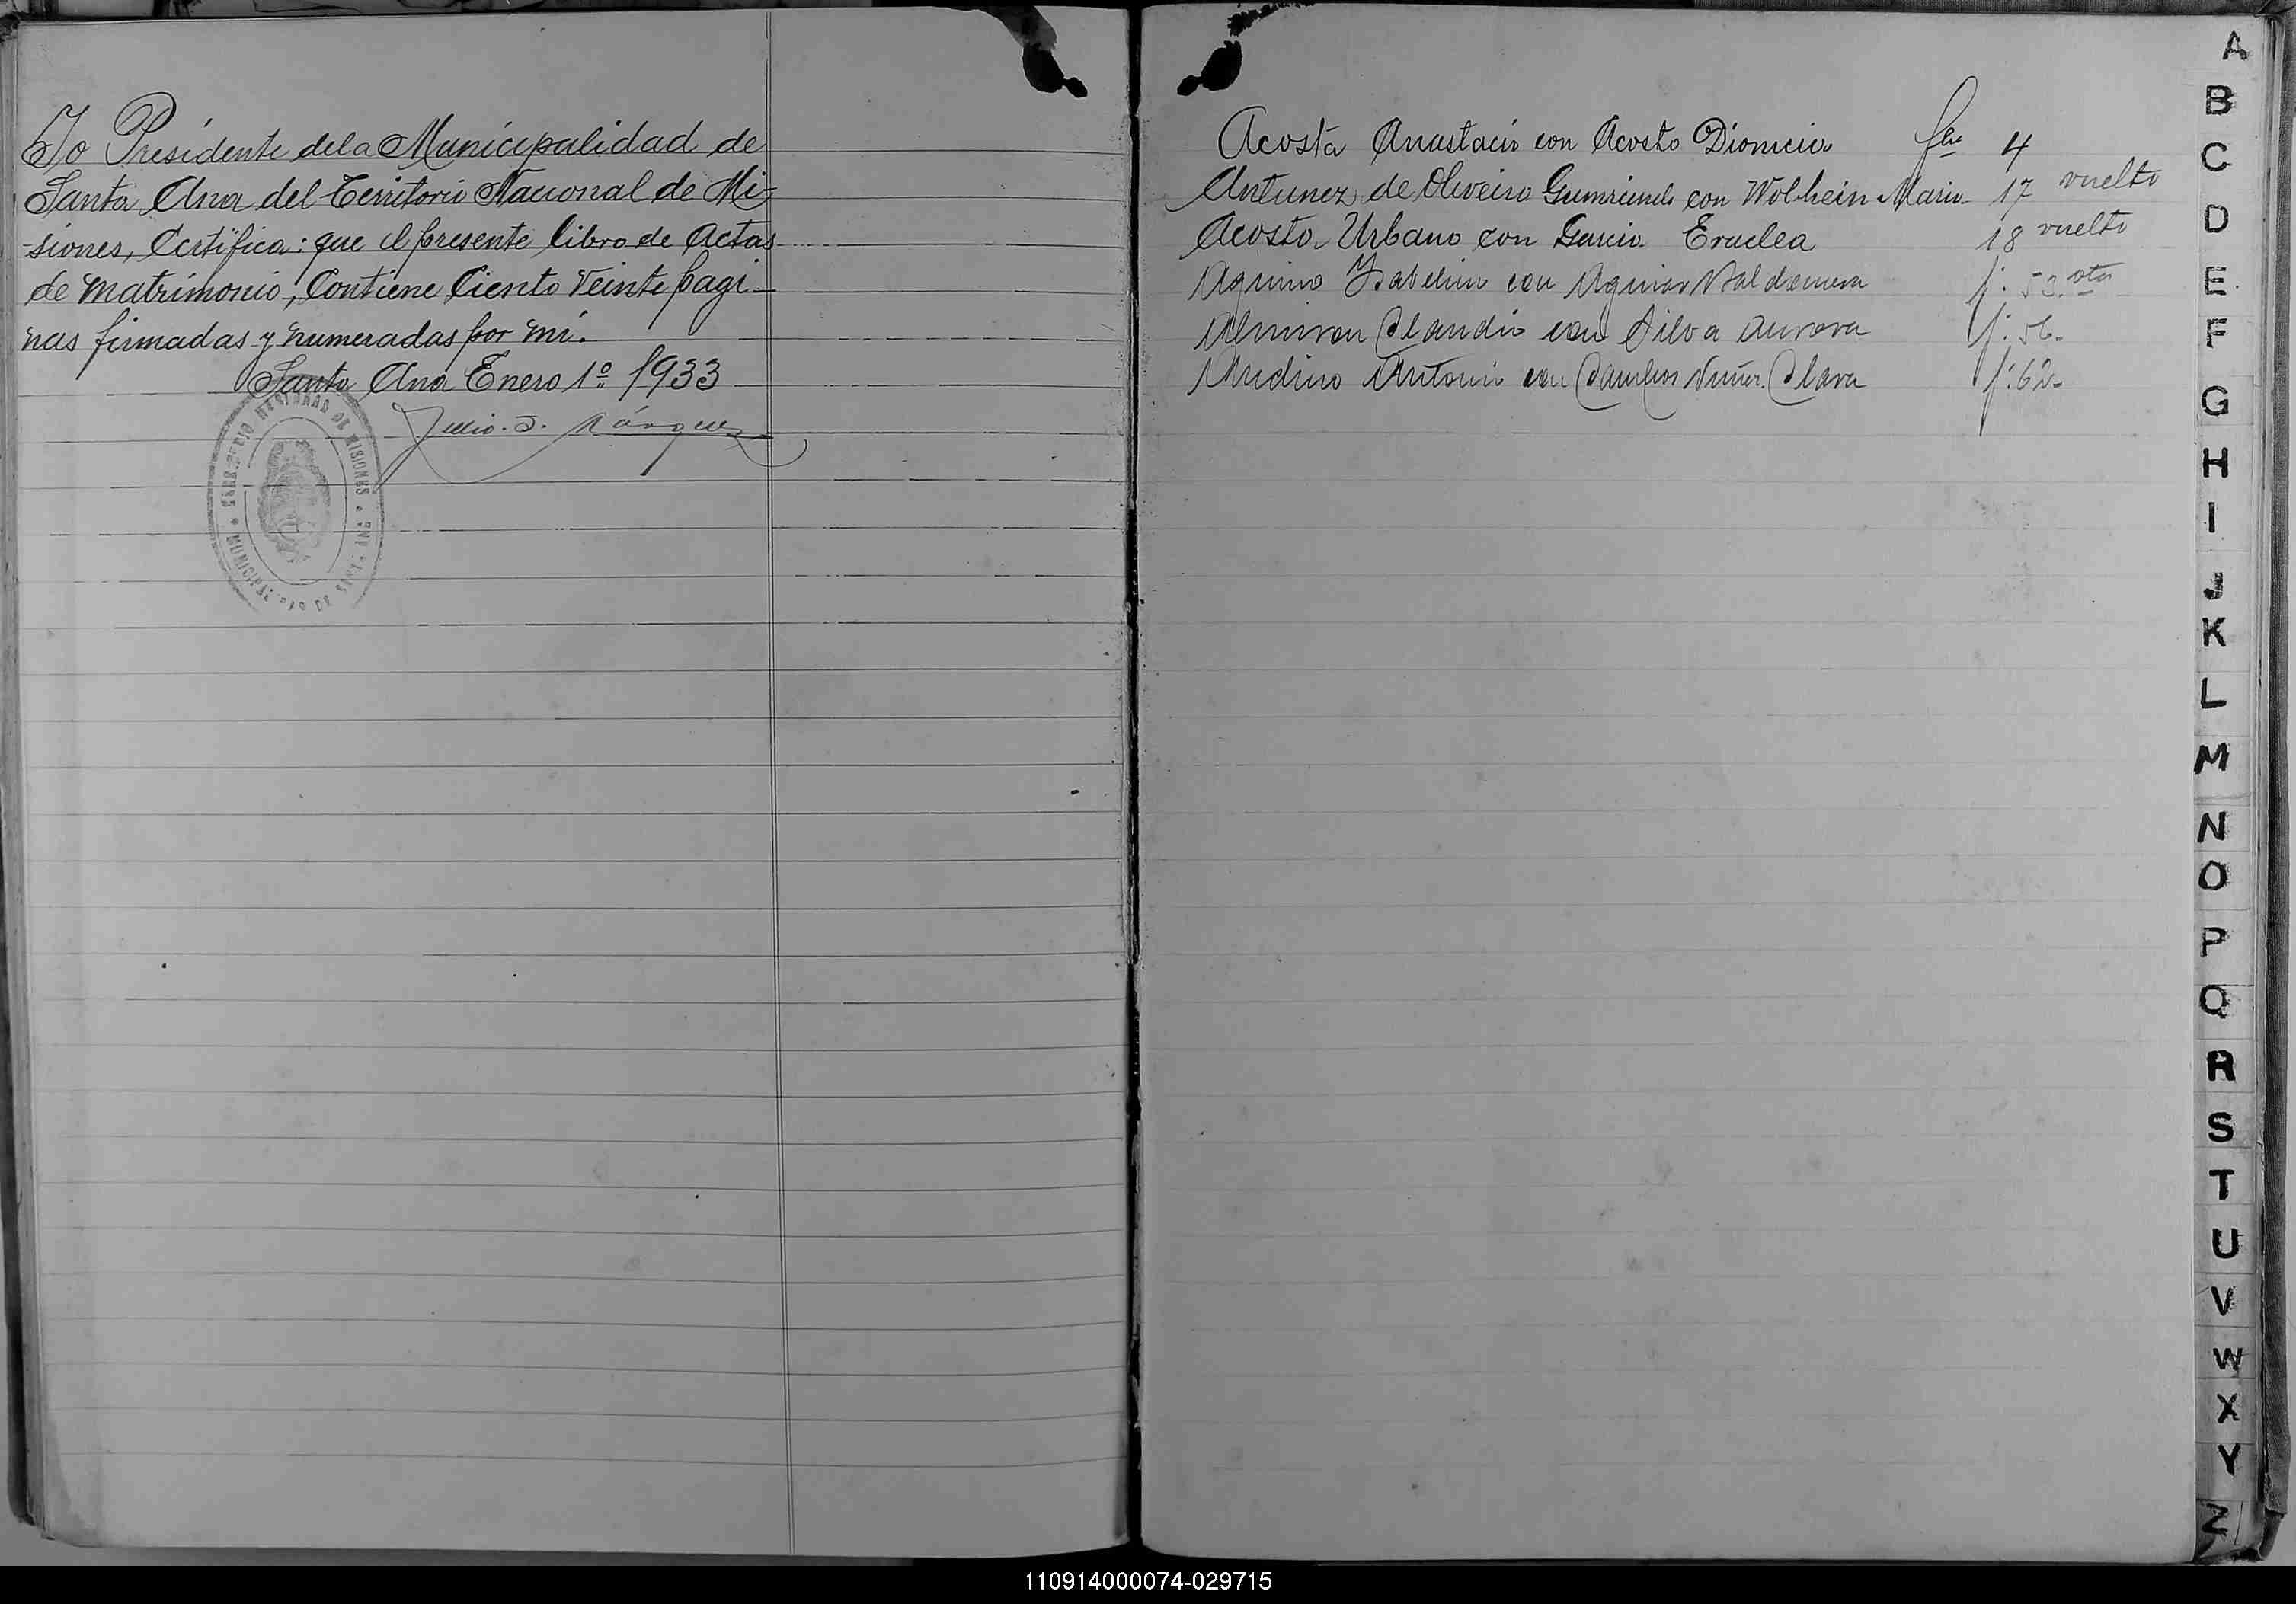 Yo Presidente de la Municipalidad de
Santa Ana del Territorio Nacional de Mi-
siones, Certifica: que el presente libro de Actas
de Matrimonio, Contiene Ciento Veinte pagi-
nas firmadas y numeradas por mi.
Santa Ana Enero 1º 1933
Julio. J. Márquez
TERRITORIO NACIONAL DE MISIONES
MUNICIPALIDAD DE SANTA ANA
Acosta Anastacio con Acosta Dionicia 4
Antunez de Oliveira Gumercindo con Wolhein Maria 17 vuelto
Acosta Urbano con Garcia Eraclea 18 vuelto
Aquino Isabelino con Aguiar Valdemera f. 53. vto
Almiron Claudio con Silva Aurora f. 56.
Andino Antonio con Nuñez Clara f. 62.
A
B
C
D
E
F
G
H
I
J
K
L
M
N
O
P
Q
R
S
T
U
V
W
X
Y
Z
110914000074-029715